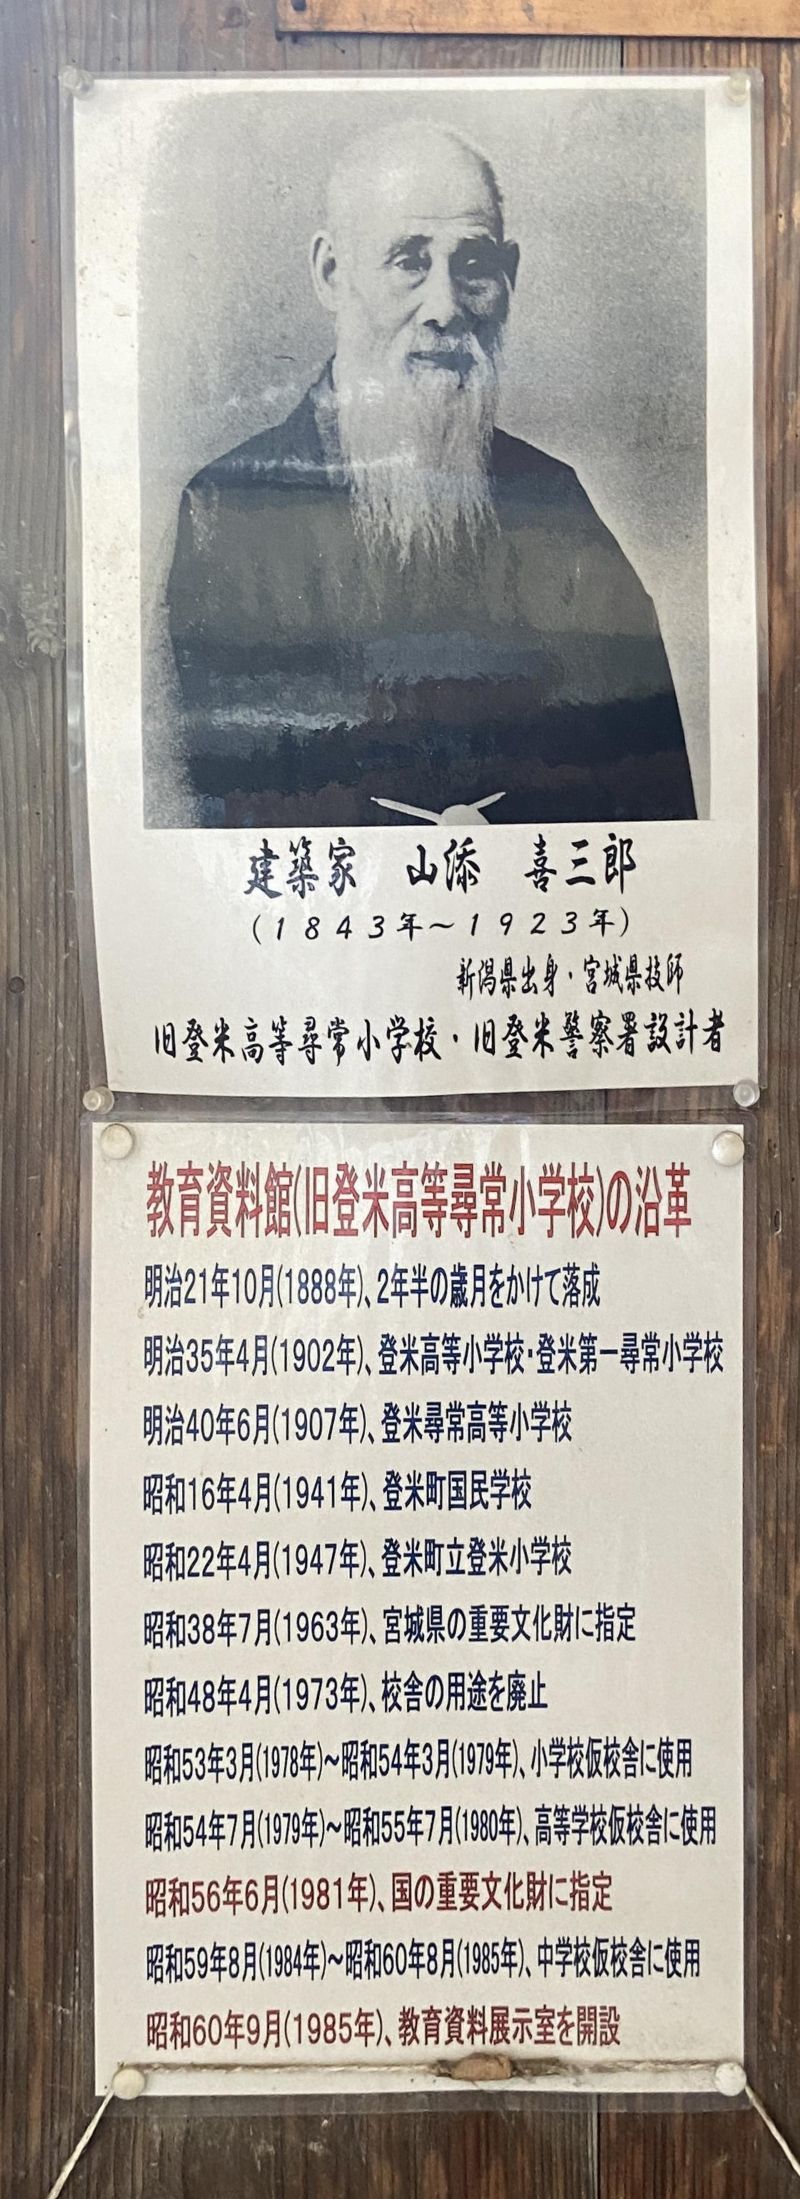 建築家　山添　喜三郎
（１８４３年～１９２３年）
新潟県出身・宮城県技師
旧登米高等尋常小学校・旧登米警察署設計者
教育資料館(旧登米高等尋常小学校)の沿革
明治21年10月(1888年)、2年半の歳月をかけて落成
明治35年4月(1902年)、登米高等小学校・登米第一尋常小学校
明治40年6月(1907年)、登米尋常高等小学校
昭和16年4月(1941年)、登米町国民学校
昭和22年4月(1947年)、登米町立登米小学校
昭和38年7月(1963年)、宮城県の重要文化財に指定
昭和48年4月(1973年)、校舎の用途を廃止
昭和53年3月(1978年)～昭和54年3月(1979年)、小学校仮校舎に使用
昭和54年7月(1979年)～昭和55年7月(1980年)、高等学校仮校舎に使用
昭和56年6月(1981年)、国の重要文化財に指定
昭和59年8月(1984年)～昭和60年8月(1985年)、中学校仮校舎に使用
昭和60年9月(1985年)、教育資料展示室を開設